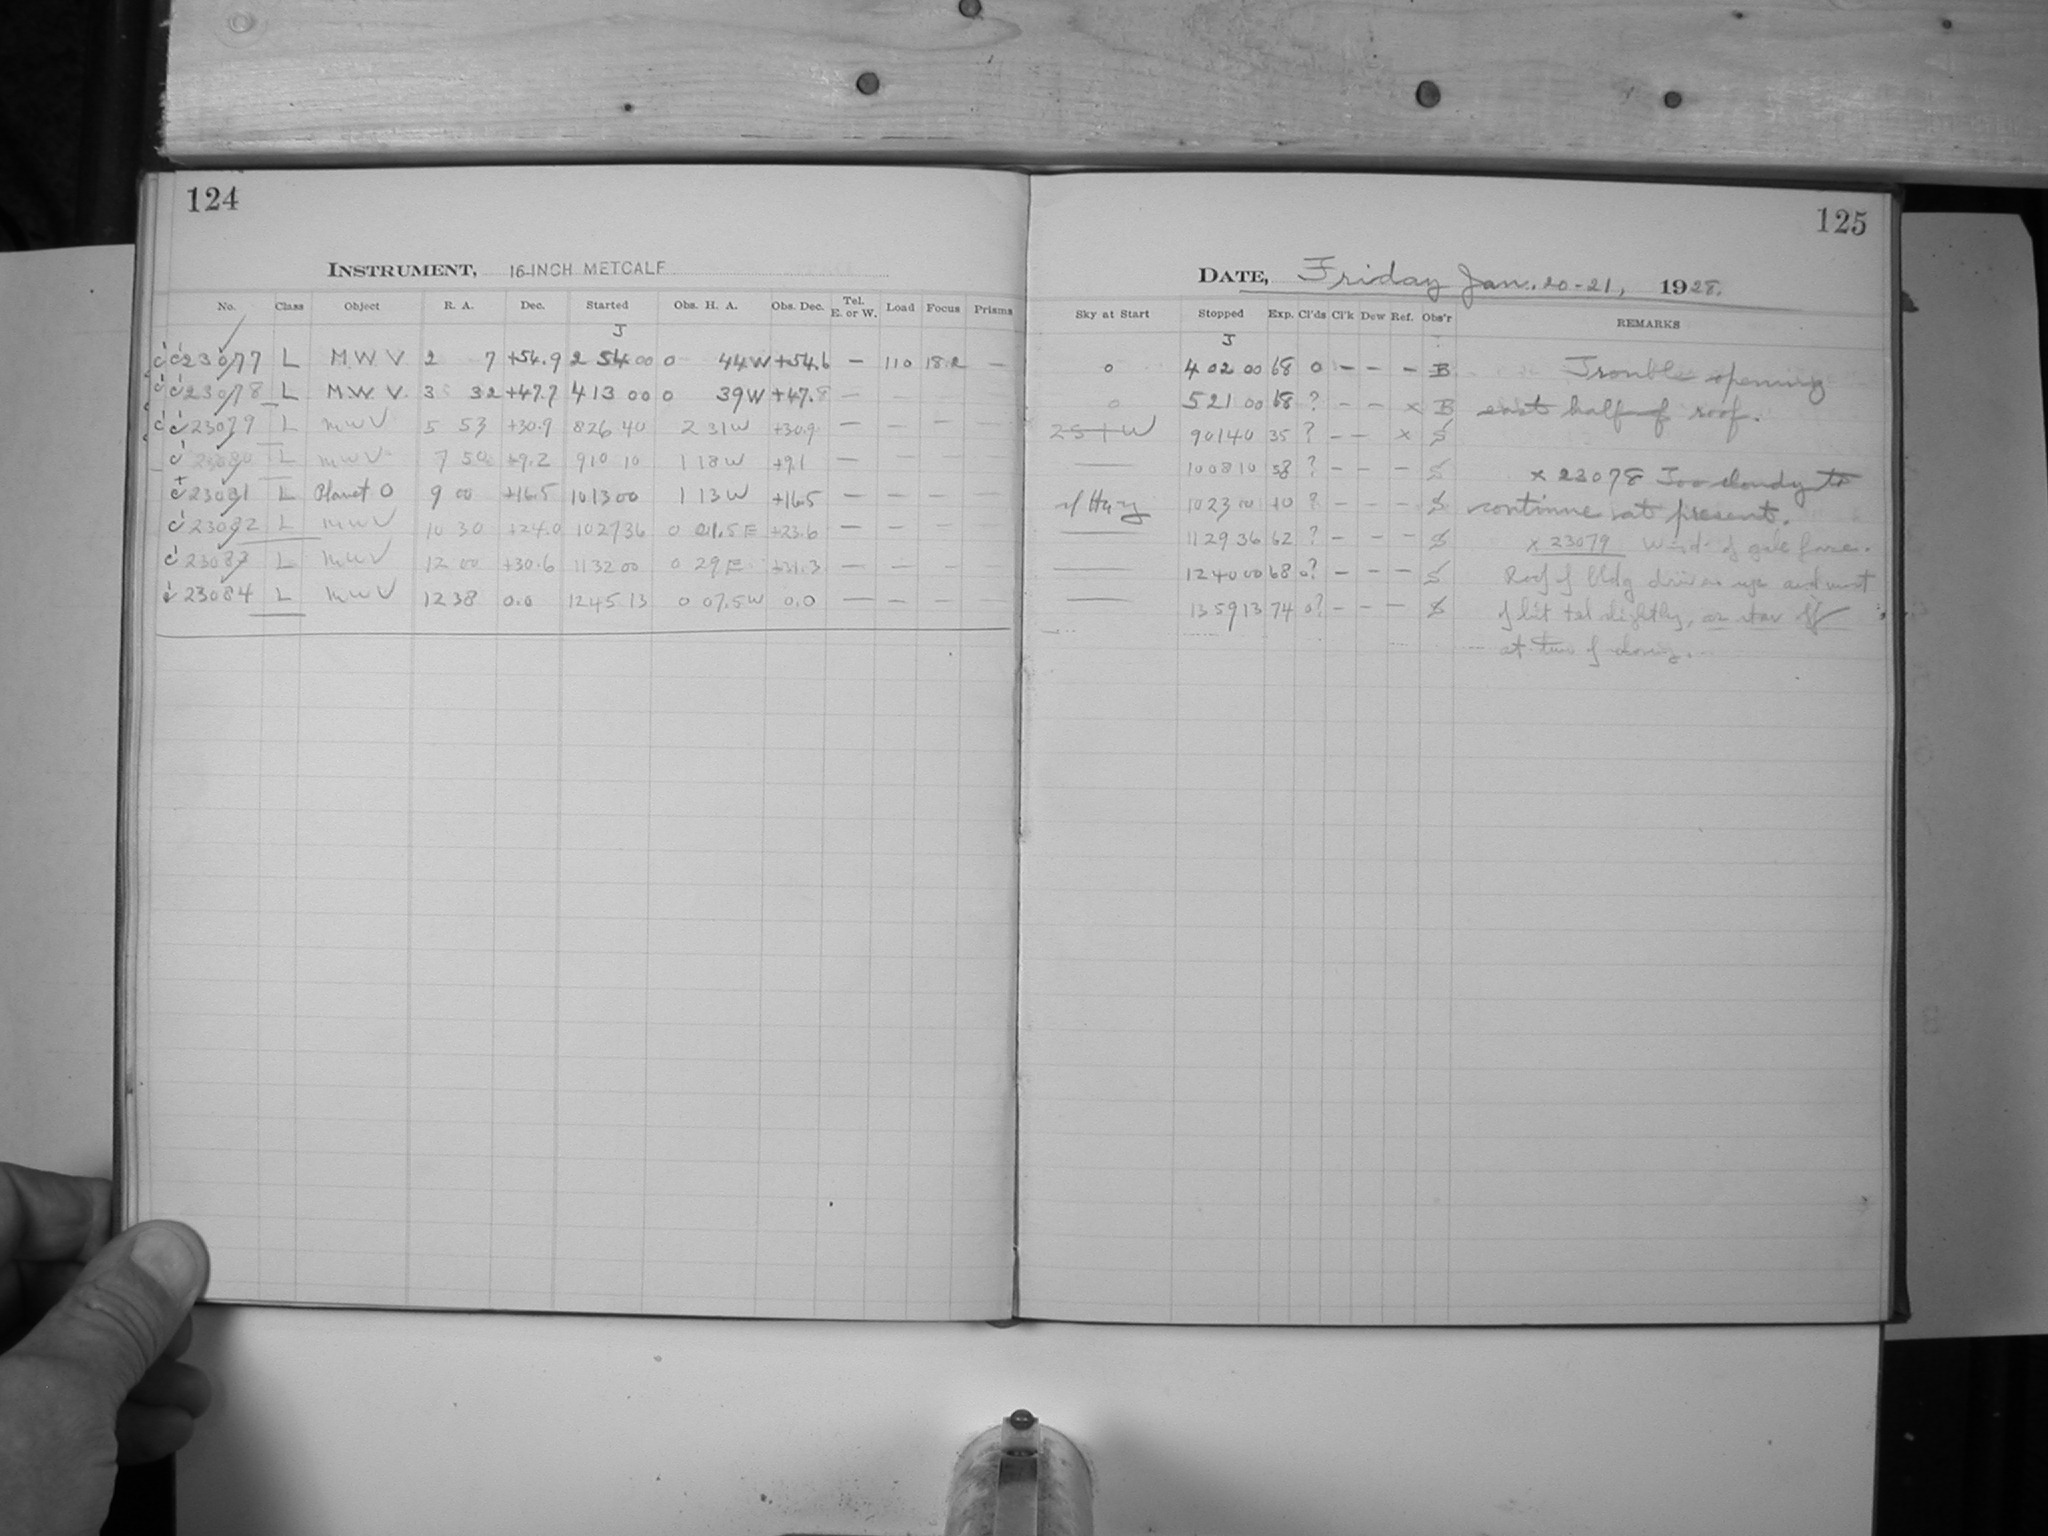 124
INSTRUMENT, 16-INCH METCALF
No. Class Object R. A. Dec. Started Obs. H. A. Obs. Dec. Tel. E. or W. Load Focus Prisms
J
23077 L M.W.V. 2 7 +54.9 2 54 00 0 44W +54.6 — 110 18.2 —
23078 L M.W.V. 3 32 +47.7 4 13 00 0 39W +47.8 — — — —
23079 L MWV 5 53 +30.9 8 26 40 2 31W +30.9 — — — —
23080 L MWV 7 50 +9.2 9 10 10 1 18W +9.1 — — — —
23081 L Planet O 9 00 +16.5 10 13 00 1 13W +16.5 — — — —
23082 L MWV 10 30 +24.0 10 27 36 0 01.5E +23.6 — — — —
23083 L MWV 12 00 +30.6 11 32 00 0 29E +31.3 — — — —
23084 L MWV 12 38 0.0 12 45 13 0 07.5W 0.0 — — — —
125
DATE, Friday Jan. 20-21, 1928.
Sky at Start Stopped Exp. Cl'ds Cl'k Dew Ref. Obs'r REMARKS
J
0 4 02 00 68 0 — — — B Trouble opening
0 5 21 00 68 ? — — x B east half of roof.
9 01 40 35 ? — — x S
— 10 08 10 58 ? — — — S x 23078 Too cloudy to
Hazy 10 23 00 10 ? — — — S continue at present.
— 11 29 36 62 ? — — — S x 23079 Wind of gale force.
— 12 40 00 68 0? — — — S Roof of bldg and must
— 13 59 13 74 0? — — — S hit tel slightly, as star off
at time of closing.